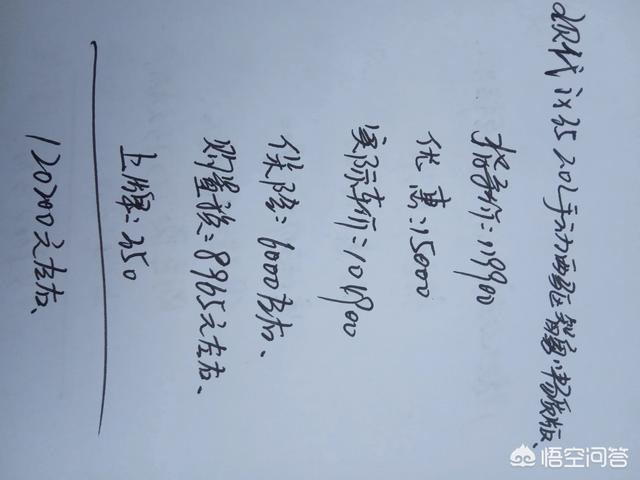 现代ix35 2.0L手动两驱智勇·畅质版、
指导价:119900
优惠:15000
实际车价:104900
保险:6000左右、
购置税:8965元左右、
上牌:350
120200元左右、
悟空问答